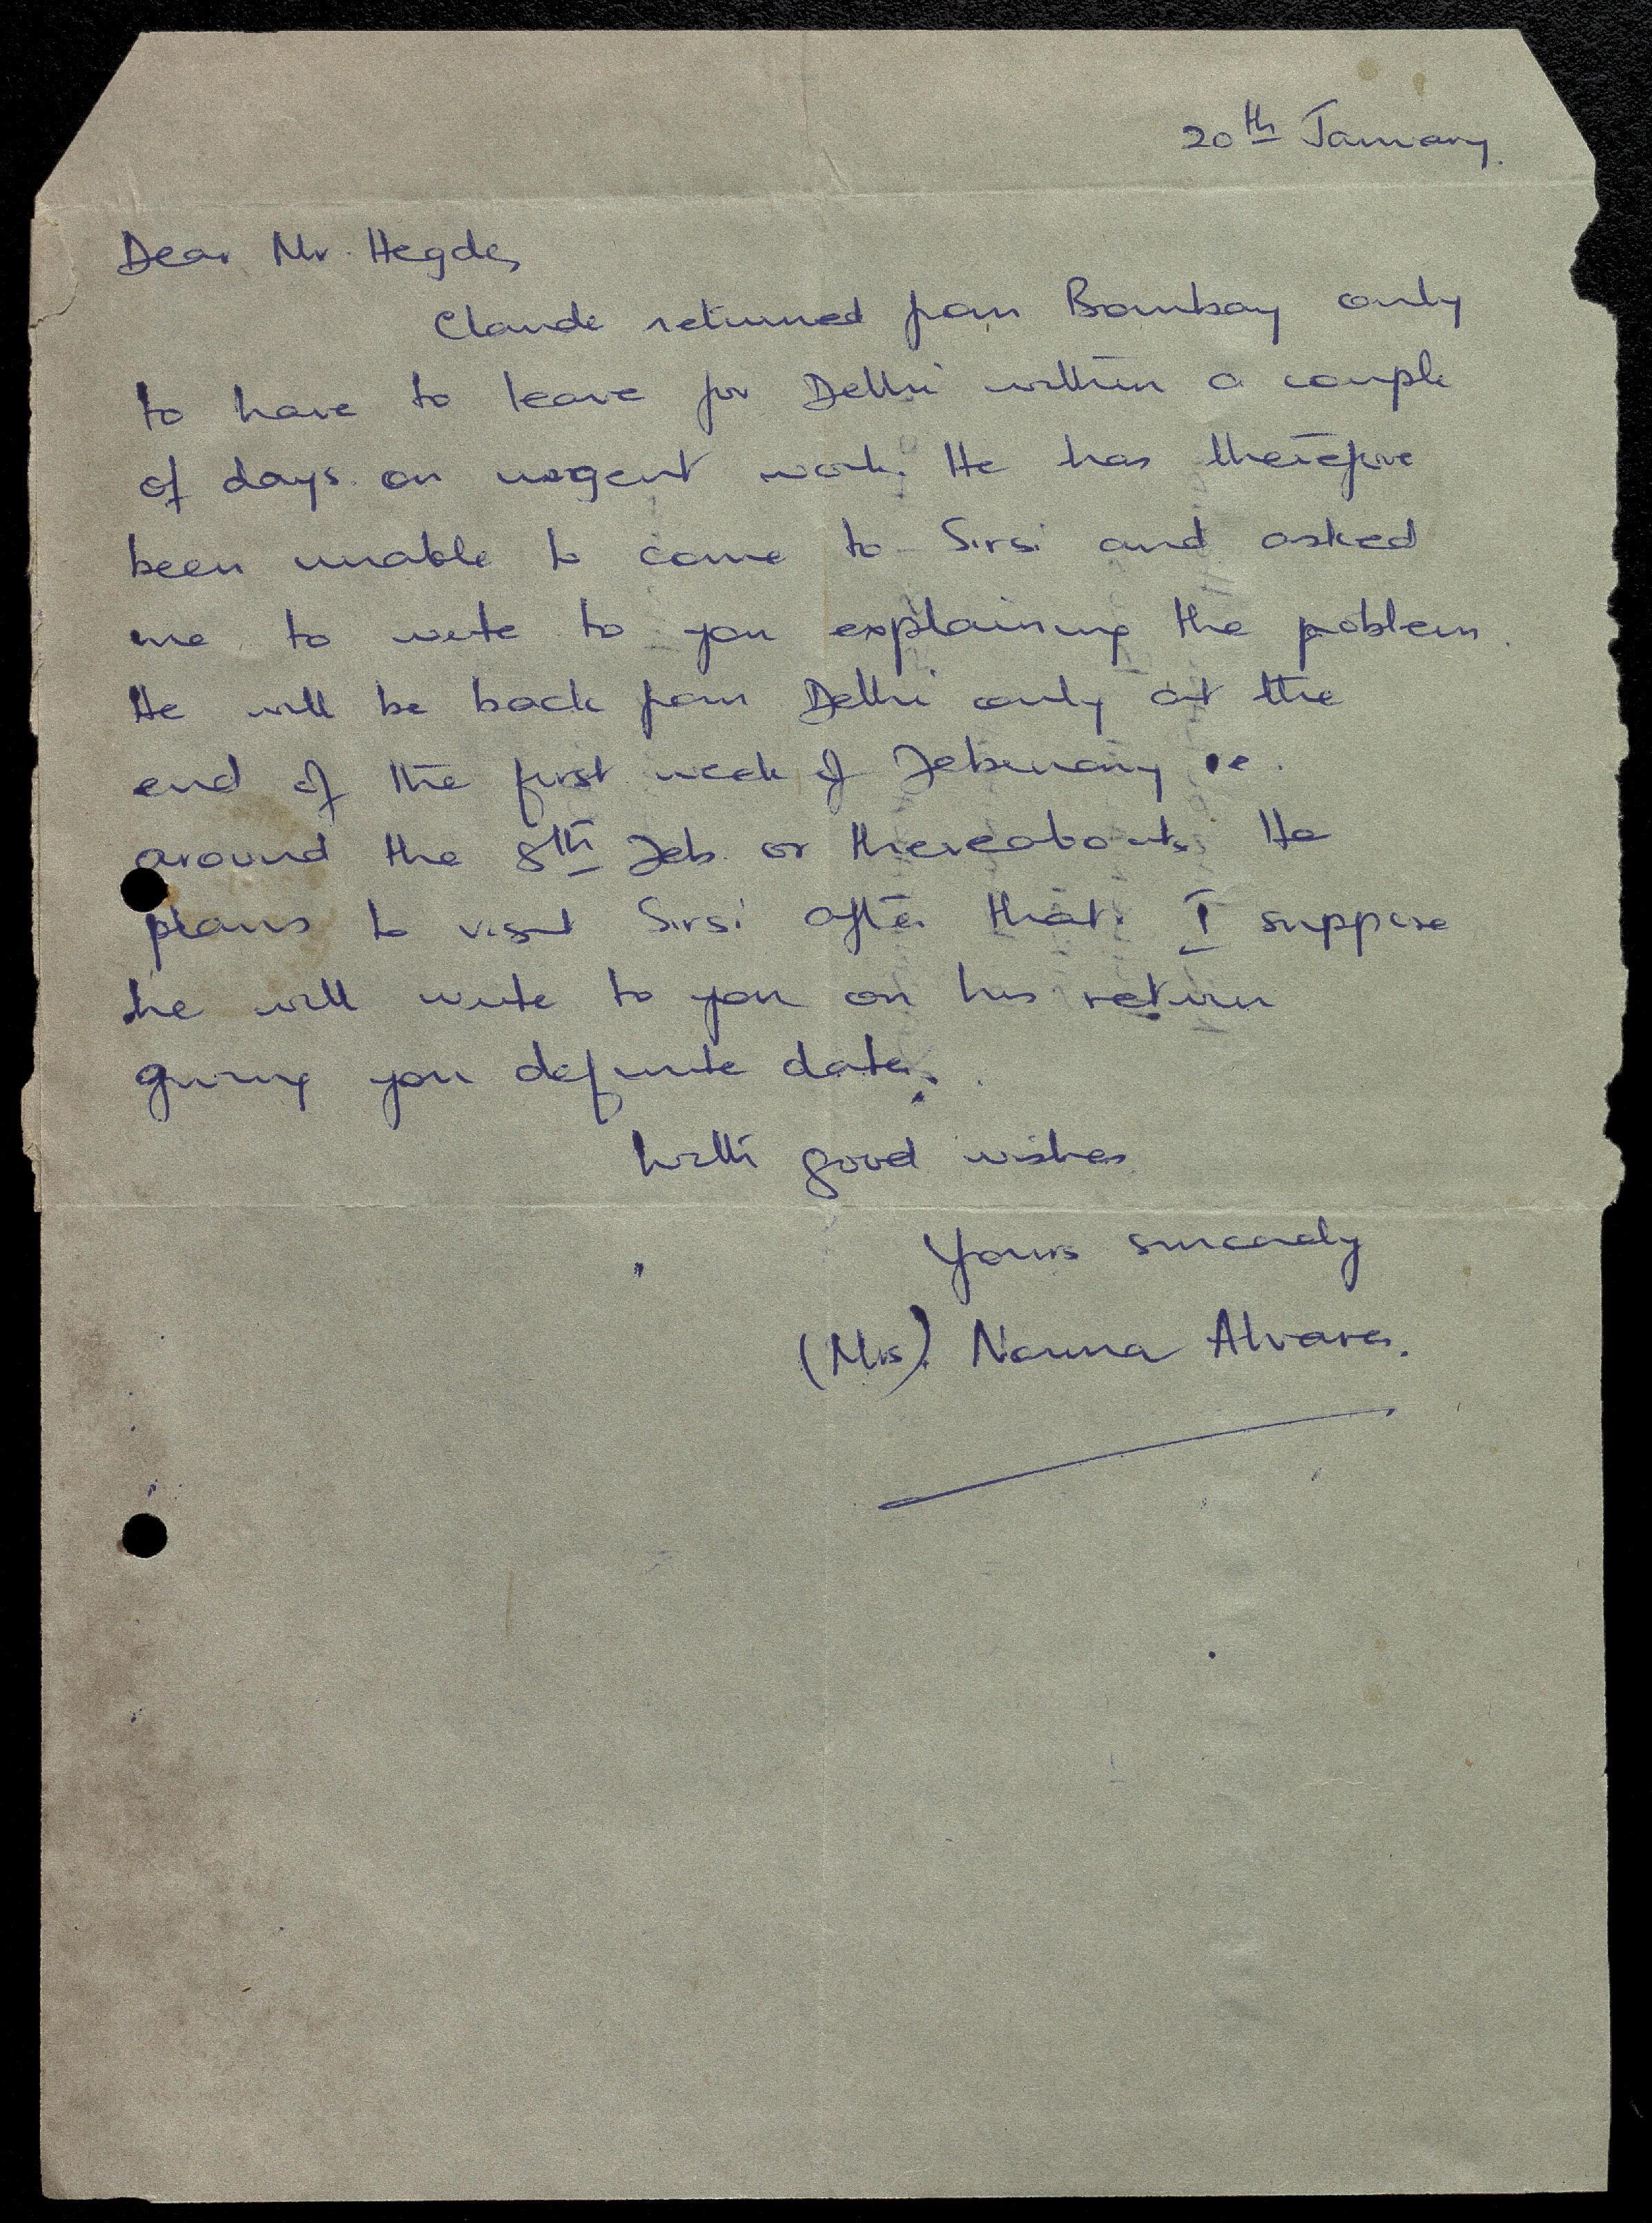 20th January.
Dear Mr. Hegde,
Claude returned from Bombay only
to have to leave for Delhi within a couple
of days on urgent work. He has therefore
been unable to come to Sirsi and asked
me to write to you explaining the problem.
He will be back from Delhi only at the
end of the first week of February ie.
around the 8th Feb. or thereabouts. He
plans to visit Sirsi after that. I suppose
he will write to you on his return
giving you definite dates.
With good wishes
Yours sincerely
(Mrs). Norma Alvares.